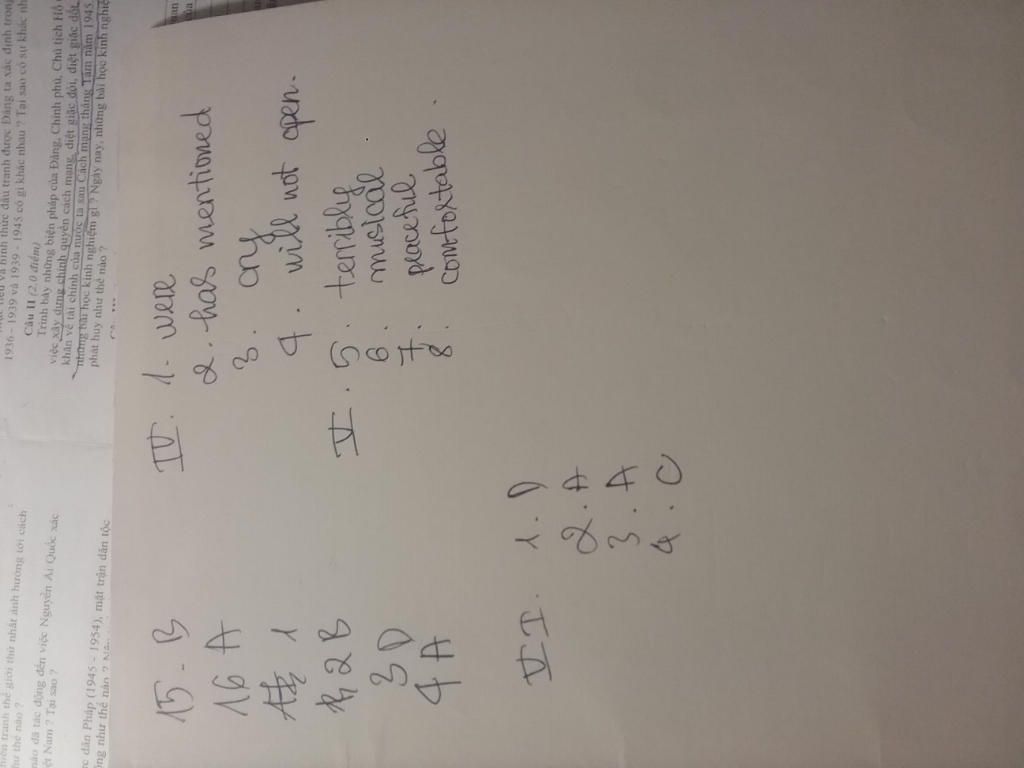 1936 - 1939 và 1939 - 1945 có gì khác nhau ? Tại sao có sự khác
Câu II (2.0 điểm)
Trình bày những biện pháp của Đảng, Chính phủ, Chủ tịch Hồ
việc xây dựng chính quyền cách mạng, diệt giặc đói, diệt giặc dốt,
khăn về tài chính của nước ta sau Cách mạng tháng Tám năm 1945.
những bài học kinh nghiệm gì ? Ngày nay, những bài học kinh
phát huy như thế nào ?
tranh thế giới thứ nhất ảnh hưởng tới cách
thế nào ?
nào đã tác động đến việc Nguyễn Ái Quốc xác
Nam ? Tại sao ?
dân Pháp (1945 - 1954), mặt trận dân tộc
như thế nào ?
15 - B
16 A
1
2 B
3 D
4 A
IV. 1. were
2. has mentioned
3. cry
4. will not open.
V. 5. terribly
6. musical
7. peaceful
8. comfortable.
VI. 1. D
2. A
3. A
4. C